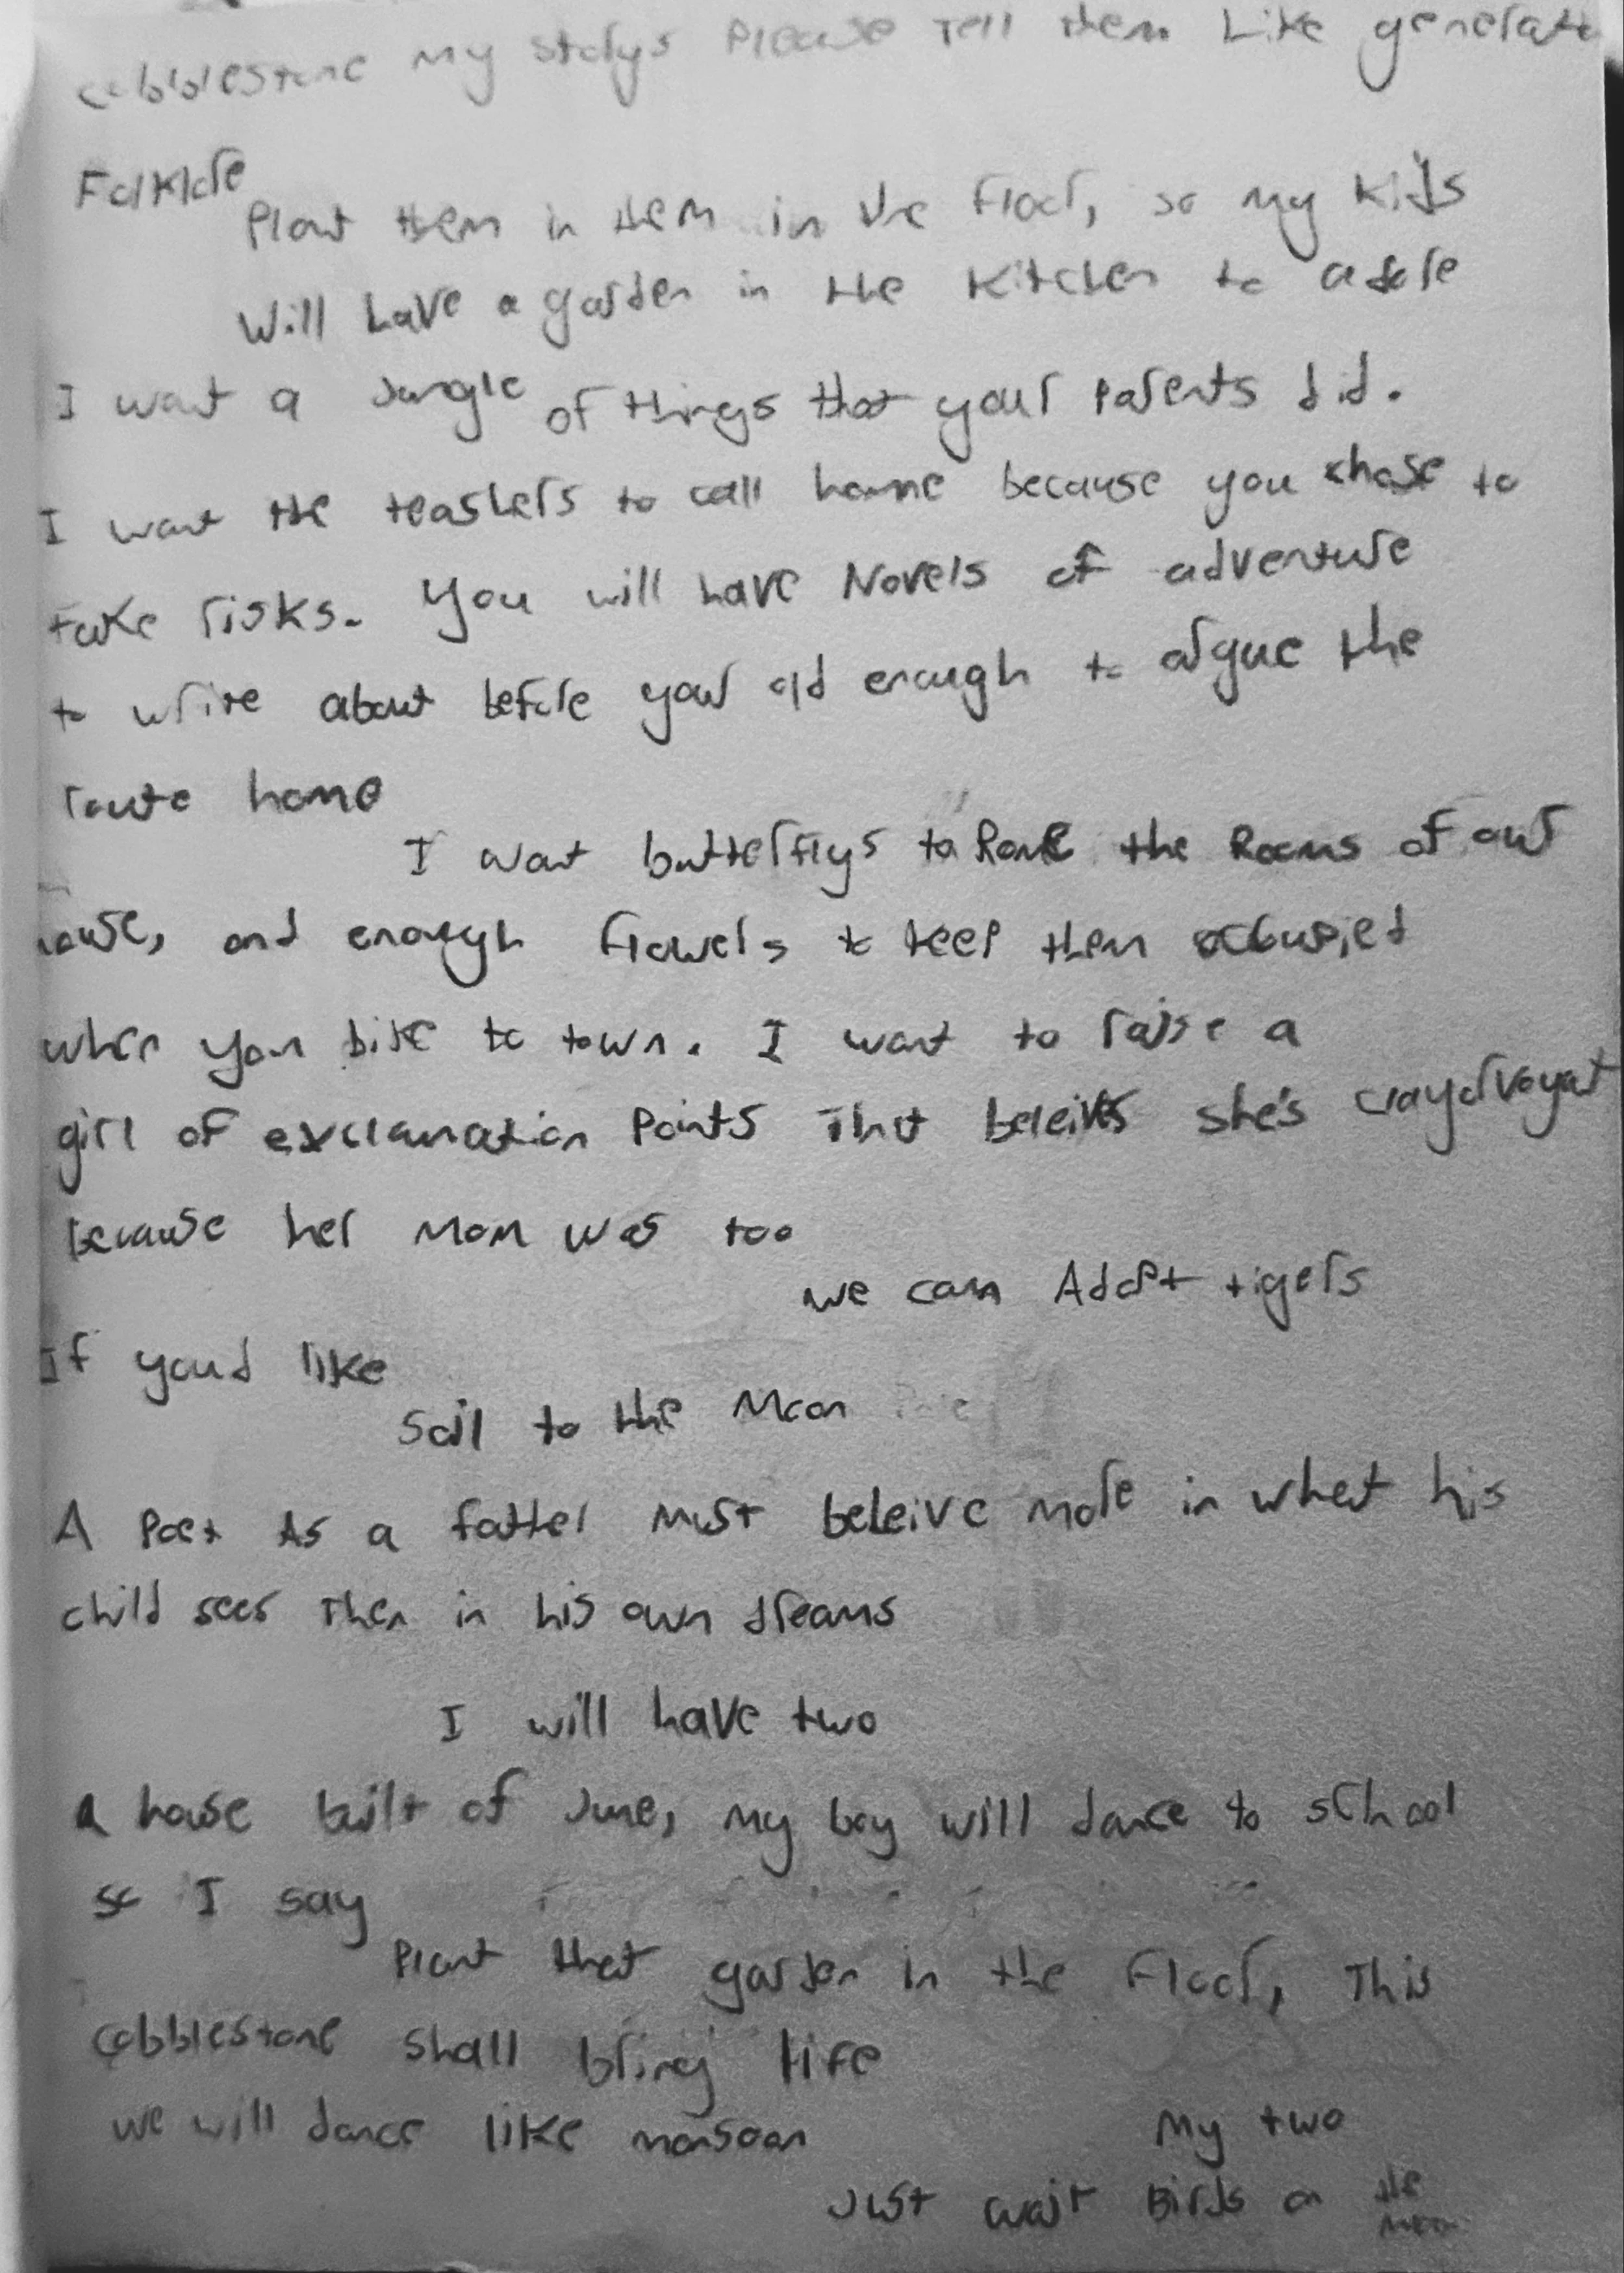 cobblestone my storys Please Tell them Like generat
Folklore
Plant them in them in the floor, so my kids
Will have a garden in the kitchen to adore
I want a Jungle of things that your parents did.
I want the teashers to call home because you chose to
take risks. You will have Novels of adventure
to write about before your old enough to argue the
route home
I want butterflys to Rome the Rooms of our
house, and enough flowers to keep them occupied
when you bike to town. I want to raise a
girl of exclamation Points That beleives she's crayorvoyat
because her Mom was too
we can Adopt tigers
If youd like
Sail to the Moon
A Poet As a father Must beleive more in what his
child sees Then in his own dreams
I will have two
a house built of June, my boy will dance to school
so I say
Plant that garden in the floor, This
cobblestone shall bring life
we will dance like monsoon
My two
Just wait Birds on the
Moon